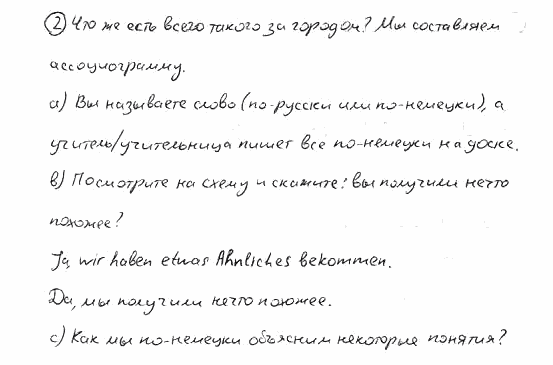 ② Что же есть всего такого за городом? Мы составляем
ассоциограмму.
a) Вы называете слово (по-русски или по-немецки), а
учитель/учительница пишет все по-немецки на доске.
b) Посмотрите на схему и скажите: вы получили нечто
похожее?
Ja, wir haben etwas Ähnliches bekommen.
Да, мы получили нечто похожее.
c) Как мы по-немецки объясним некоторые понятия?